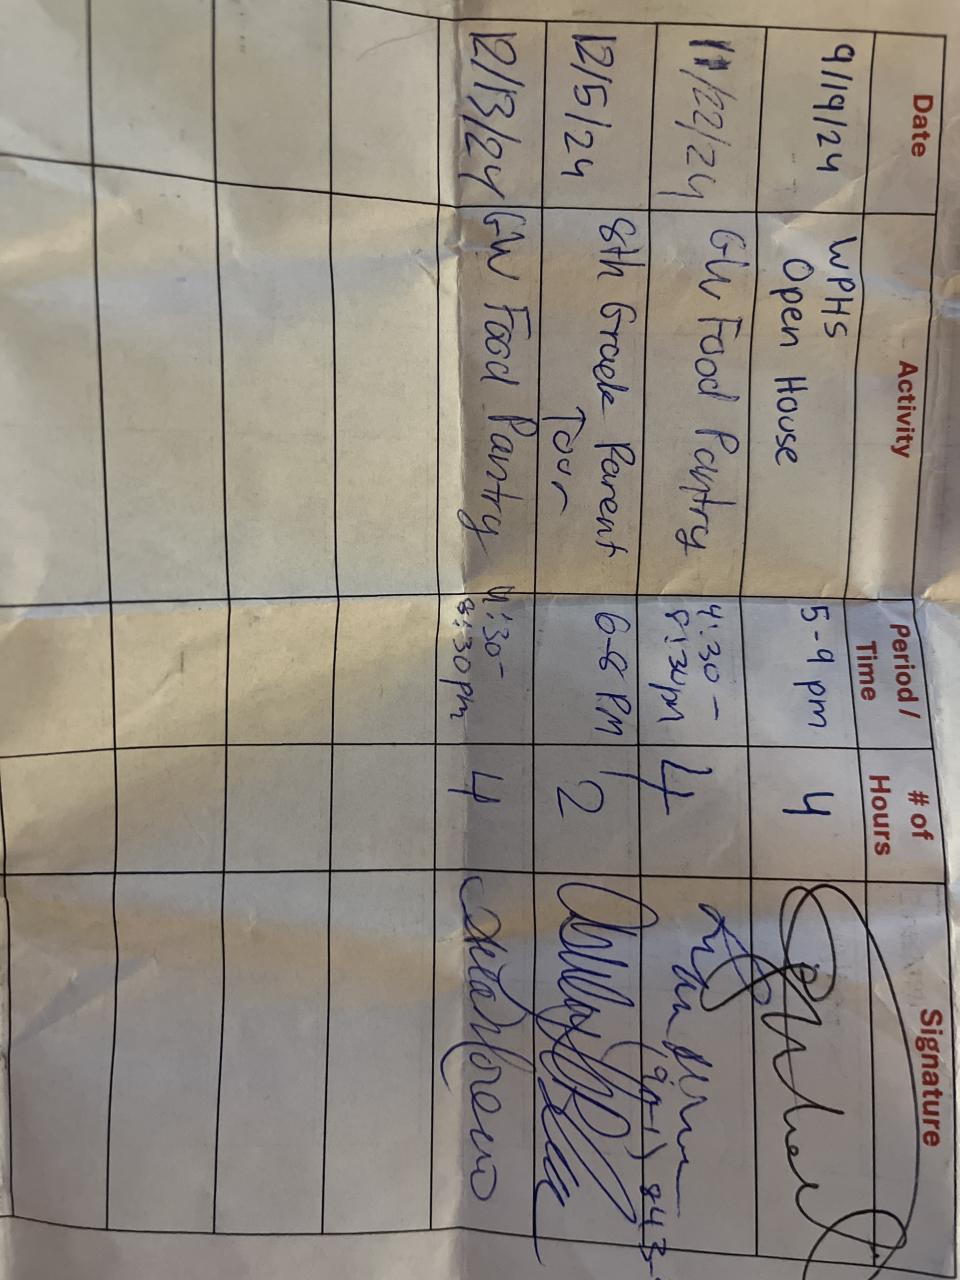 Date Activity Period / Time # of Hours Signature
9/19/24 WPHS Open House 5-9 pm 4
11/22/24 GW Food Pantry 4:30- 8:30pm 4 (901) 843-
12/5/24 8th Grade Parent Tour 6-8 PM 2
12/13/24 GW Food Pantry 4:30- 8:30pm 4